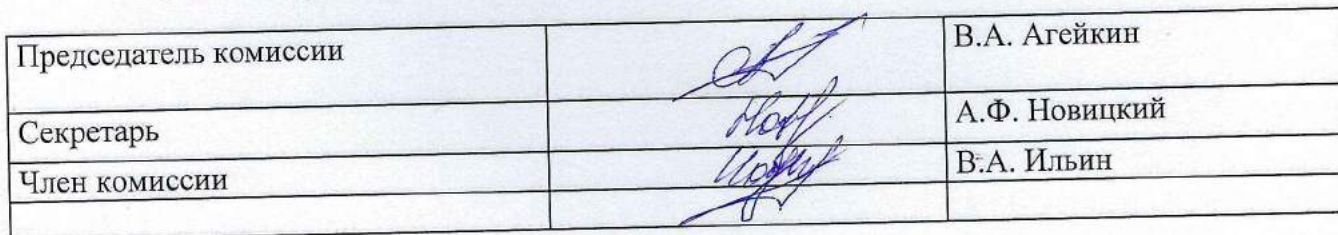 Председатель комиссии В.А. Агейкин
Секретарь А.Ф. Новицкий
Член комиссии В.А. Ильин